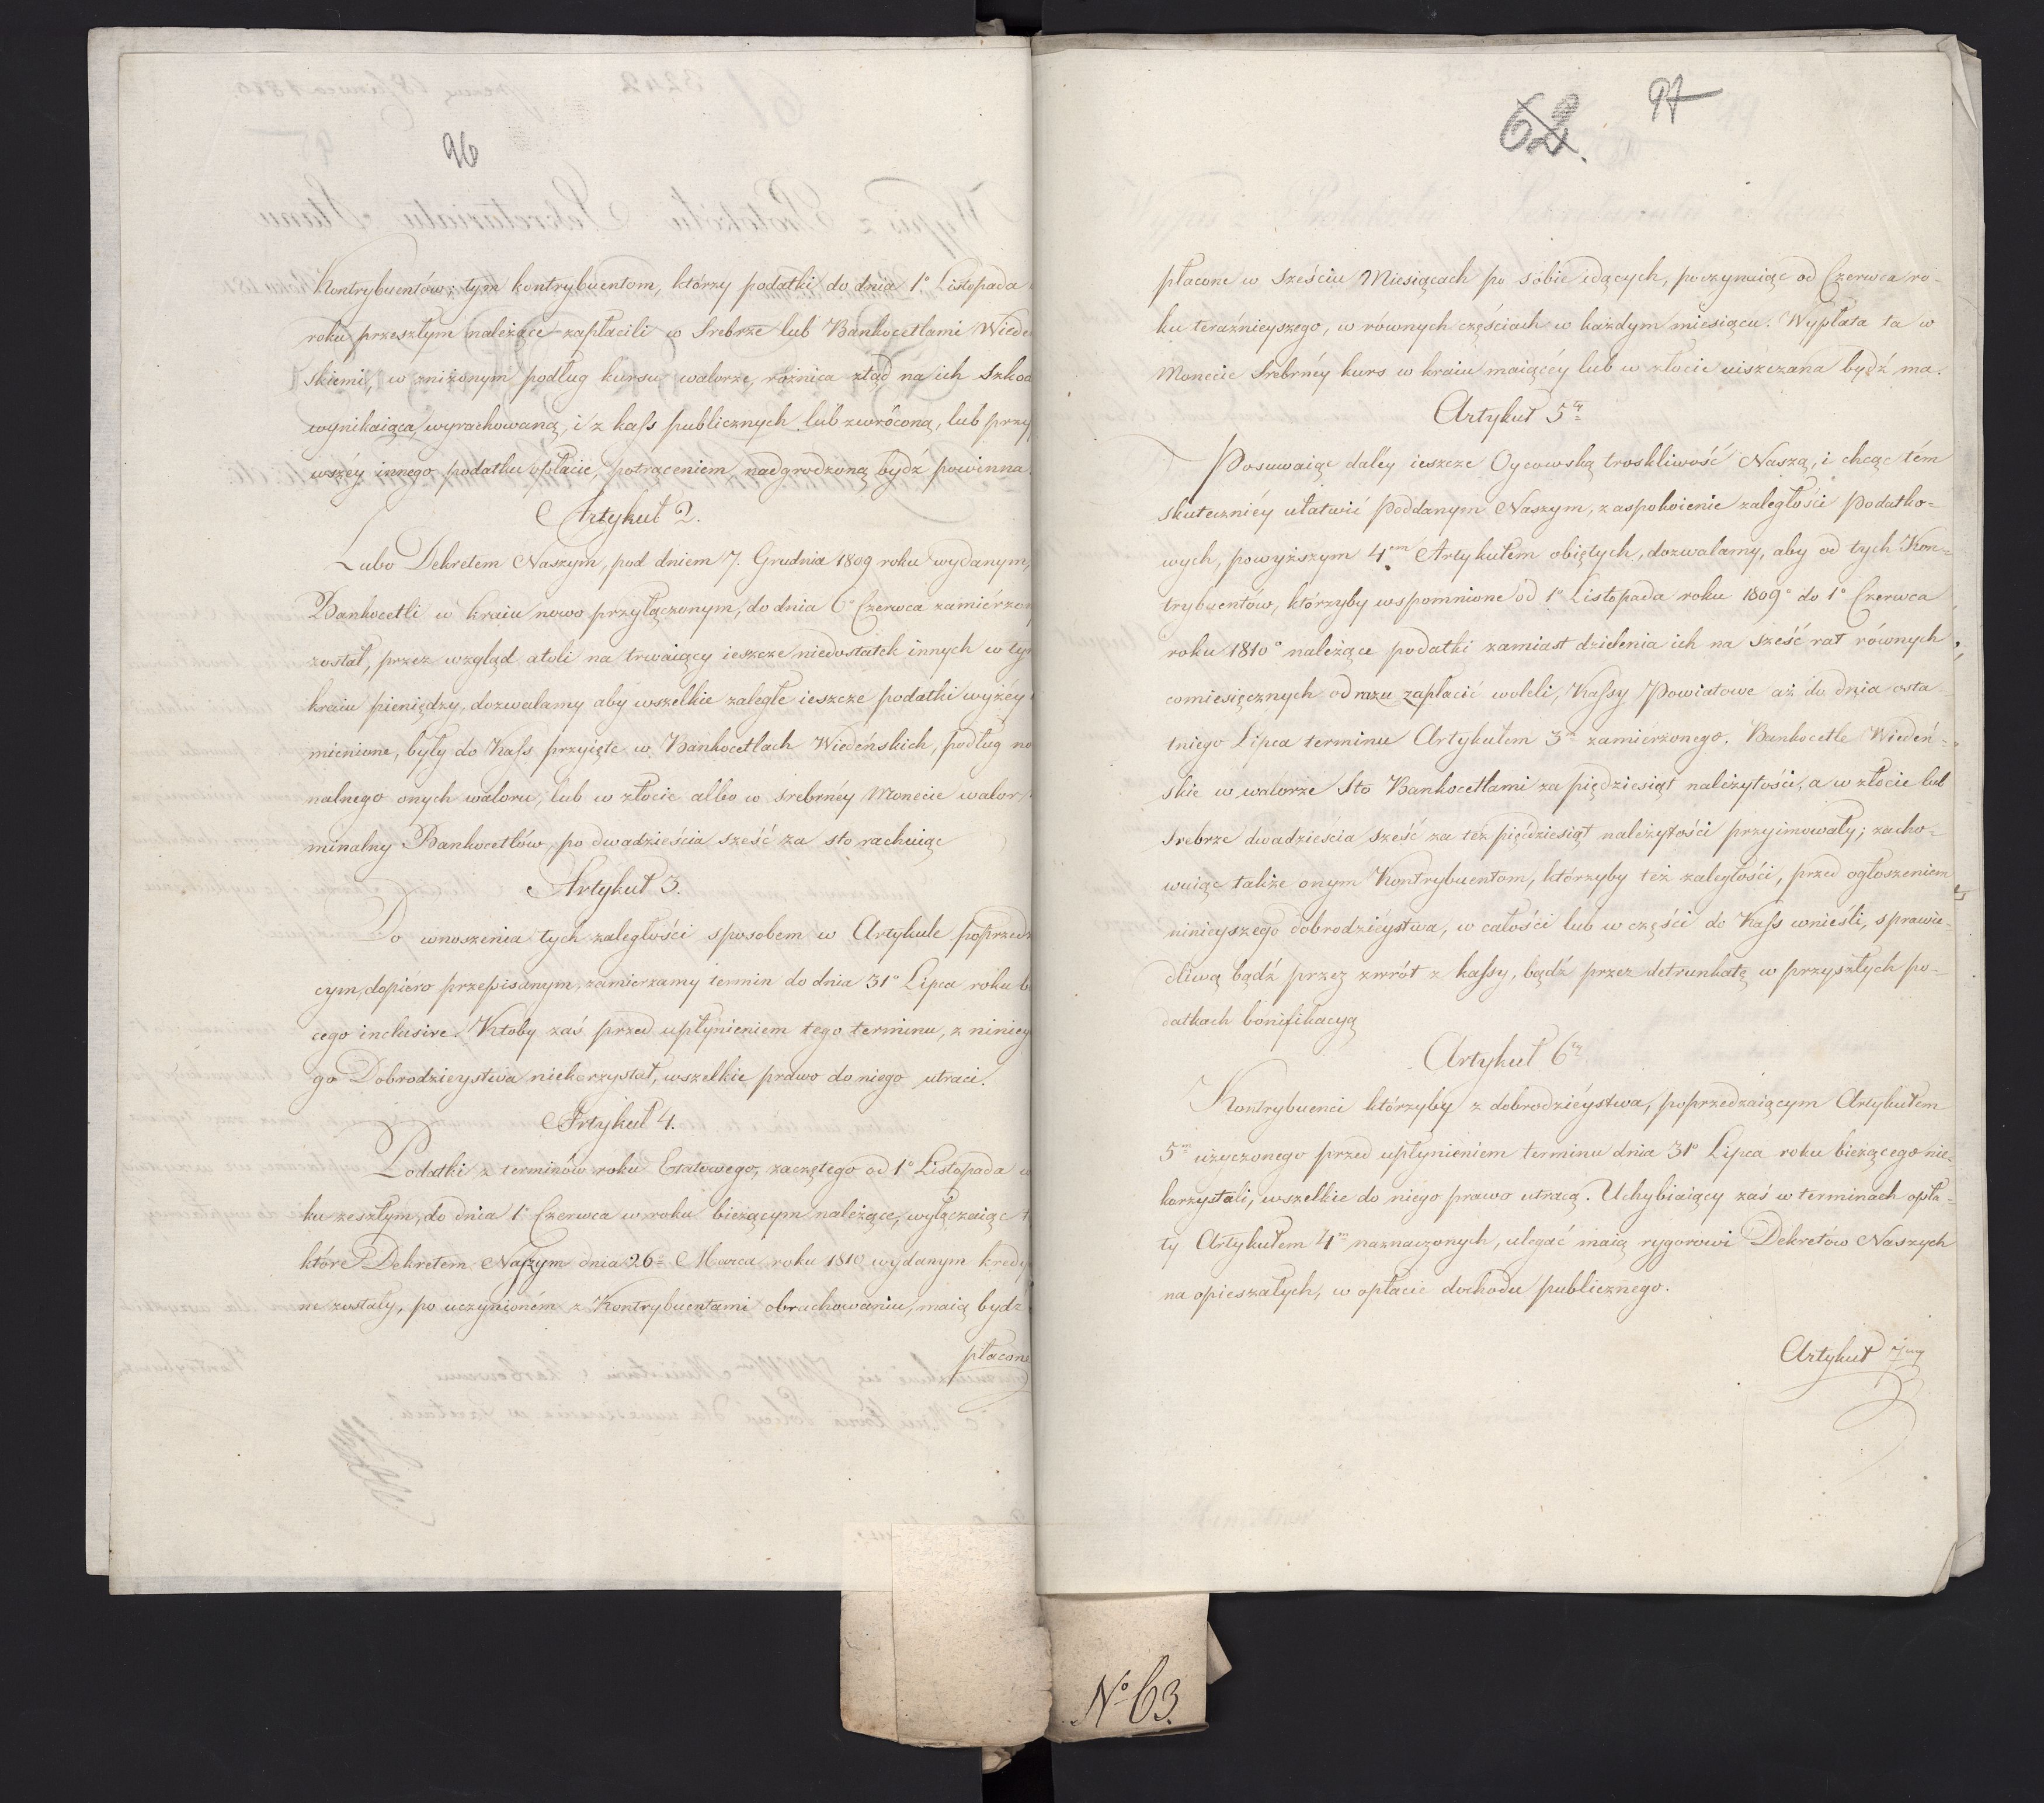 96
Kontrybuentów; tym kontrybuentom, którzy podatki do dnia 1° Listopada
roku przeszłym należące zapłacili w Srebrze lub Bankocetlami Wiede
skiemi, w zniżonym podług kursu walorze, różnica ztąd na ich Szkod
wynikaiąca, wyrachowaną, i z kass publicznych lub zwróconą, lub przy
wszéy innego podatku opłacie, potrąceniem nadgrodzoną bydź powinna.
Artykuł 2.
Lubo Dekretem Naszym, pod dniem 7. Grudnia 1809 roku wydanym,
Bankocetli w kraiu nowo przyłączonym, do dnia 6° Czerwca zamiérzon
został, przez wzgląd atoli na trwaiący ieszcze niedostatek innych w tym
kraiu pieniędzy, dozwalamy aby wszelkie zaległe ieszcze podatki wyżéy
mienione, były do Kass przyięte w Bankocetlach Wiedeńskich, podług no
nalnego onych waloru, lub w złocie albo w srebrnéy Monecie walor
minalny Bankocetlów, po dwadzieścia sześć za sto rachuiąc
Artykuł 3.
Do wnoszenia tych zaległości sposobem w Artykule poprzedz
cym, dopiéro przepisanym, zamierzamy termin do dnia 31° Lipca roku b
cego inclusive. Ktoby zaś przed upłynieniem tego terminu, z niniey
go Dobrodzieystwa niekorzystał, wszelkie prawo do niego utraci.
Artykuł 4.
Podatki z terminów roku Etatowego, zaczętego od 1° Listopada w
ku zeszłym, do dnia 1° Czerwca w roku bieżącym należące, wyłączaiąc t
które Dekretem Naszym dnia 26° Marca roku 1810 wydanym kredy
ne zostały, po uczynioném z Kontrybuentami obrachowaniu, maią bydź
płacone
62. 97
płacone w Sześciu Miesiącach po sobie idących, poczynaiąc od Czerwca ro-
ku teraźnieyszego, w równych częściach w każdym miesiącu. Wypłata ta w
Monecie Srebrnéy kurs w kraiu maiącéy lub w złocie uiszczana bydź ma.
Artykuł 5ty
Posuwaiąc daléy ieszcze Oycowską troskliwość Naszą, i chcąc tém
skuteczniéy ułatwić Poddanym Naszym, zaspokoienie zaległości Podatko-
wych, powyższym 4em Artykułem obiętych, dozwalamy, aby od tych Kon-
trybuentów, którzyby wspomnione od 1° Listopada roku 1809° do 1° Czerwca
roku 1810° należące podatki zamiast dzielenia ich na sześć rat równych
comiesięcznych od razu zapłacić woleli, Kassy Powiatowe aż do dnia osta-
tniego Lipca terminu Artykułem 3m zamierzonego, Bankocetle Wiedeń-
skie w walorze Sto Bankocetlami za pięćdziesiąt należytości, a w złocie lub
Srebrze dwadzieścia sześć za też pięćdziesiąt należytości przyimowały; zacho-
wuiąc także onym Kontrybuentom, którzyby też zaległości, przed ogłoszeniem
ninieyszego dobrodziéystwa, w całości lub w części do Kass wnieśli, sprawie-
dliwą bądź przez zwrót z kassy, bądź przez detrunkatę w przyszłych po-
datkach bonifikacyą
Artykuł 6ty
Kontrybuenci którzyby z dobrodziéystwa, poprzedzaiącym Artykułem
5m użyczonego przed upłynieniem terminu dnia 31° Lipca roku bieżącego nie-
korzystali, wszelkie do niego prawo utracą. Uchybiaiący zaś w terminach opła-
ty Artykułem 4m naznaczonych, ulegać maią rygorowi Dekretów Naszych
na opieszałych, w opłacie dochodu publicznego.
Artykuł 7my
N° 63.